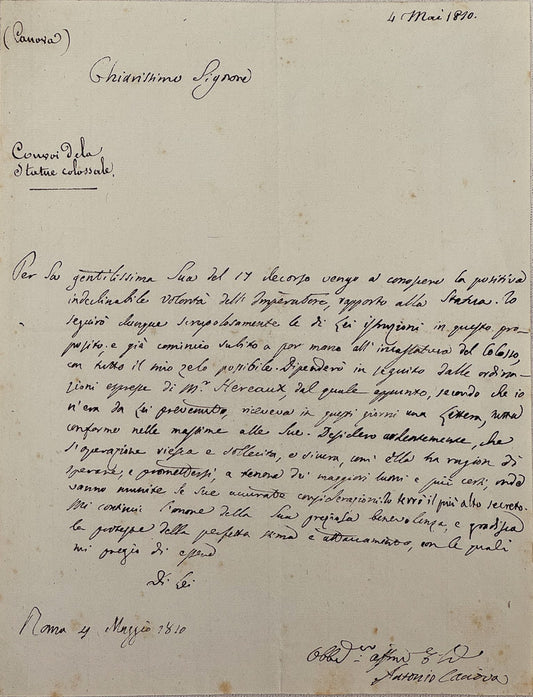 4 Mai 1810.
(Canova)
Chiarissimo Signore
Convoi de la
Statue colossale.
Per la gentilissima Sua del 17 decorso vengo a conoscere la positiva
indeclinabile volontà dell'Imperatore, rapporto alla Statua. Io
seguirò dunque scrupolosamente le di Lei istruzioni in questo pro-
posito, e già comincio subito a por mano all'incassatura del Colosso,
con tutto il mio zelo possibile. Dipenderò in seguito dalle ordina-
zioni espresse di Mr. Hereaux, dal quale appunto, secondo che io
n'era da Lei prevenuto, riceveva in questi giorni una Lettera, tutta
conforme nelle massime alle Sue. Desidero ardentemente, che
l'operazione riesca e sollecita, e sicura, com'ella ha ragion di
sperare, e promettersi, a tenore dei maggiori lumi e più certi, onde
vanno munite le Sue accurate considerazioni. Io terrò il più alto secreto.
Mi continui l'onore della Sua pregiata benevolenza, e gradisca
le proteste della perfetta stima e attaccamento, con le quali
mi pregio di essere
Di Lei
Roma 4 Maggio 1810
Antonio Canova